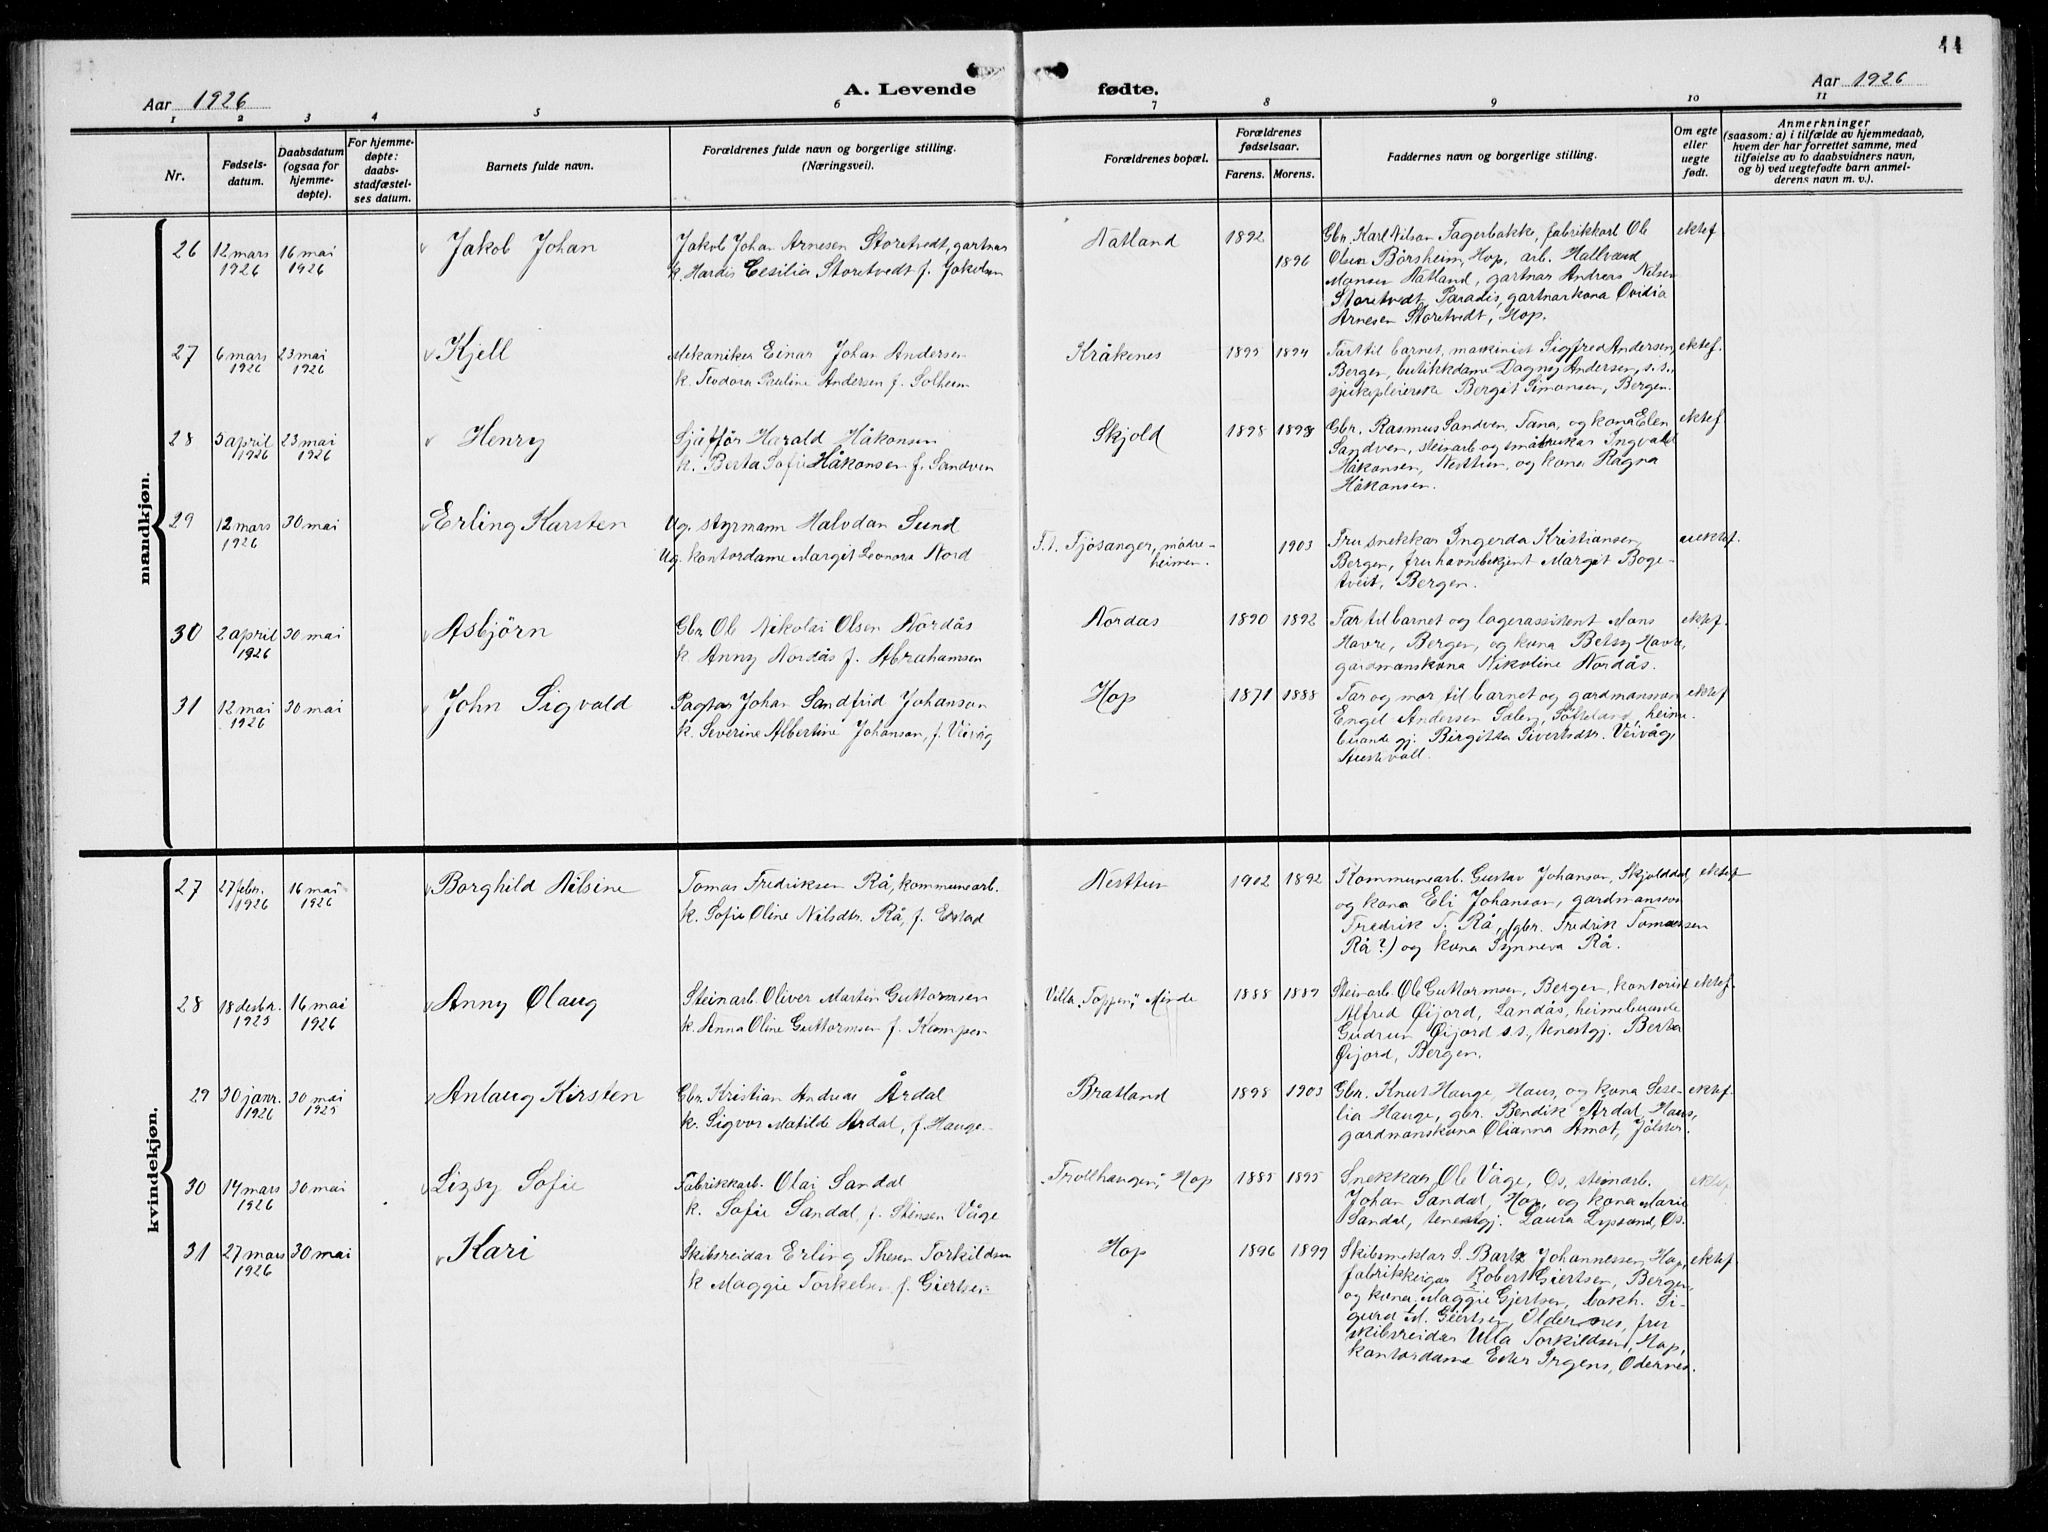 11
Aar 1926
A. Levende fødte.
Aar 1926
1 2 3 4 5 6 7 8 9 10 11
Nr.
Fødsels-
datum.
Daabsdatum
(ogsaa for
hjemme-
døpte).
For hjemme-
døpte:
daabs-
stadfæstel-
ses datum.
Barnets fulde navn.
Forældrenes fulde navn og borgerlige stilling.
(Næringsvei).
Forældrenes bopæl.
Forældrenes
fødselsaar.
Farens. Morens.
Faddernes navn og borgerlige stilling.
Om egte
eller
uegte
født.
Anmerkninger
(saasom: a) i tilfælde av hjemmedaab,
hvem der har forrettet samme, med
tilføielse av to daabsvidners navn,
og b) ved uegtefødte barn anmel-
derens navn m. v.).
mandkjøn.
26
12 mars
1926
16 mai
1926
Jakob Johan
Jakob Johan Arnesen Storetvedt, gartnar
k. Hardis Cesilie Storetvedt f. Jakobsen
Natland
1892
1896
Gbr. Karl Nilsen Fagerbakke, fabrikkarb Ole
Olsen Børsheim, Hop, arb. Hallvard
Monsen Natland, gartnar Andreas Nilsen
Storetvedt, Paradis, gartnarkona Ovidia
Arnesen Storetvedt, Hop.
ektef
27
6 mars
1926
23 mai
1926
Kjell
Mekaniker Einar Johan Andersen
k. Teodora Pauline Andersen f. Solheim
Kråkenes
1895 1894
Far til barnet, maskinist Sigfred Andersen,
Bergen, butikkdame Dagny Andersen, s.s.,
sjukepleierske Bergit Simonsen, Bergen.
ektef.
28
5 april
1926
23 mai
1926
Henry
Sjåffør Harald Håkonsen
k. Berta Sofie Håkonsen f. Sandven
Skjold
1898 1898
Gbr. Rasmus Sandven, Tana, og kona Elen
Sandven, steinarb og småbrukar Ingvald
Håkonsen, Nesttun, og kona Ragna
Håkonsen.
ektef
29
12 mars
1926
30 mai
Erling Karsten
Ug. styrmann Halvdan Sund
Ug. kontordame Margit Leonora Nord
F.t. Fjösanger, mødre-
heimen.
1903
Fru snekkar Ingerda Kristiansen,
Bergen, fru havnebekjent Margit Boge-
tveit, Bergen.
uektef.
30
2 april
1926
30 mai
Asbjörn
Gbr. Ole Nikolai Olsen Nordås
k. Anny Nordås f. Abrahamsen
Nordås
1890 1892
Far til barnet og lagerassistent Mons
Havre, Bergen, og kona Betsy Havre,
gardmanskona Nikoline Nordås.
ektef.
31
12 mai
1926
30 mai
John Sigvald
Johan Sandfrid Johanson
k. Severine Albertine Johanson, f. Veivåg
Hop
1871 1888
Far og mor til barnet og gardmannen
Engel Andersen Sælen, Söfteland, heime-
buande gj. Birgitte Sivertsdtr. Veivåg,
Austevoll.
ektef
kvindekjøn.
27
27 febr.
1926
16 mai
1926
Borghild Nilsine
Tomas Fredriksen Rå, kommunearb.
k. Sofie Oline Nilsdtr. Rå, f.
Nesttun
1902 1892
Kommunearb. Gustav Johanson, Skjolddal,
og kona Eli Johanson, gardmannen
Fredrik T. Rå, (gbr. Fredrik Tomassen
Rå?) og kona Synneva Rå.
ektef
28
18 desbr.
1925
16 mai
1926
Anny Olaug
Steinarb. Oliver Martin Guttormsen
k. Anna Oline Guttormsen f. Kampen
Villa "Toppen", Minde
1888 1889
Steinarb Ole Guttormsen, Bergen, kontorist
Alfred Øijord, Landås, heimebuande
Gudrun Øijord s.s, tenestgj. Berta
Øijord, Bergen.
ektef.
29
30 janr.
1926
30 mai
1925
Anlaug Kirsten
Gbr. Kristian Andreas Årdal
k. Sigvor Matilde Årdal, f. Hauge.
Bratland
1898 1903
Gbr. Knut Hauge, Haus, og kona Sese-
lia Hauge, gbr. Bendik Årdal, Haus,
gardmanskona Olianna Åmot, Jölster.
ektef
30
14 mars
1926
30 mai
Lizzy Sofie
Fabrikkarb. Olai Sandal
k. Sofie Sandal, f. Stensen Våge
"Trollhaugen", Hop
1885 1895
Snekkar Ole Våge, Os, steinarb.
Johan Sandal, Hop, og kona Marie
Sandal, tenestgj. Laura Lysand, Os.
ektef
31
27 mars
1926
30 mai
Kari
Skibsreidar Erling Thesen Torkildsen
k Maggie Torkelsen f. Giertsen
Hop
1896 1899
Skibsmeklar S. Bartz Johannessen, Hop,
fabrikkeigar Robert Giertsen, Bergen,
og kona Maggie Gjertsen, bokh. Si-
gurd M. Giertsen, Oldernes, fru
skibsreidar Ulla Torkildsen, Hop,
kontordame Ester Irgens, Odernes.
ektef.